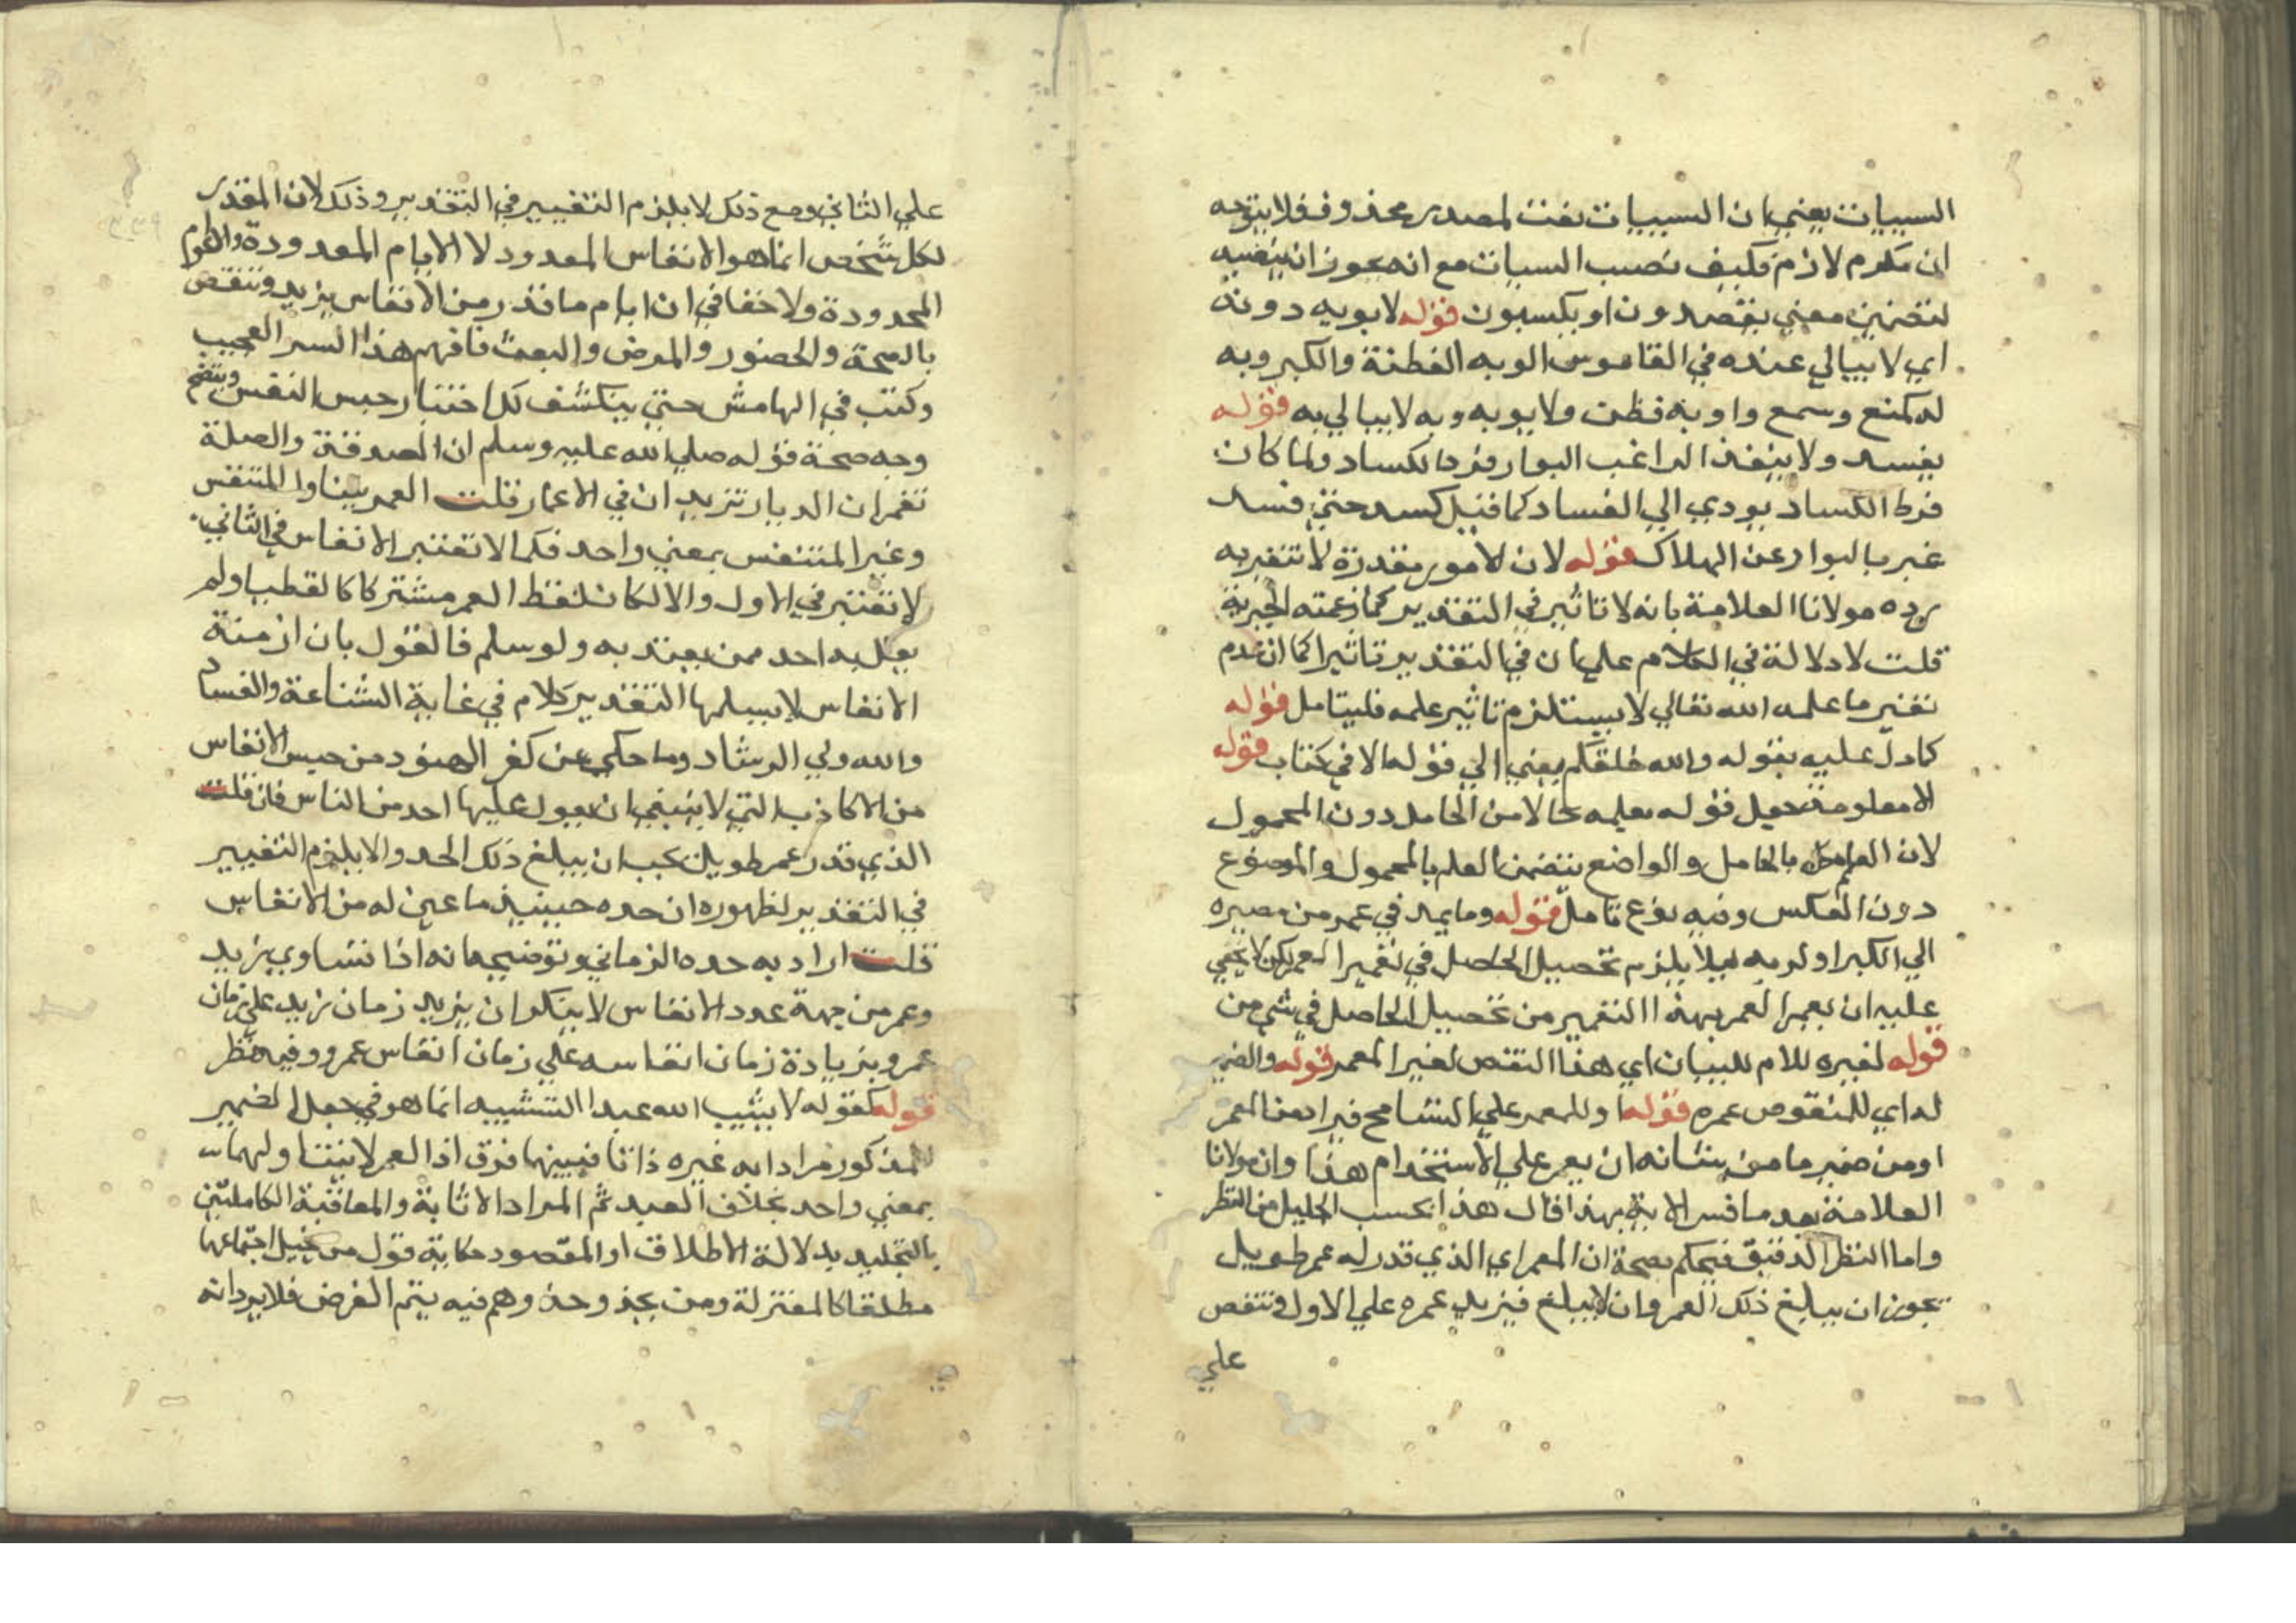 السيات يعني ان السييات نعت لمصدر محذوف فلا يتوجه
ان مكرم لازم فكيف نصب السيات مع انه يجوز ان ينصبه
لتضمين معني يقصدون او يكسبون قوله لا يوبه دونه
اي لا يبالي عنده في القاموس الوبه الفطنة والكبر وبه
له كمنع وسمع واوبه فطن ولا يوبه وبه لا يبالي به قوله
يفسد ولا ينفذ الراغب البوار فرط الكساد ولما كان
فرط الكساد يودي الي الفساد كما قيل كسد حتي فسد
عبر بالبوار عن الهلاك قوله لان الامور مقدرة لا تتغير به
رده مولانا العلامة بانه لا تاثير في التقدير كما زعمته الجبرية
قلت لا دلالة في الكلام علي ان في التقدير تاثيرا كما ان عدم
تغير ما علمه الله تعالي لا يستلزم تاثير علمه فليتامل قوله
كما دل عليه بقوله والله خلقكم يعني الي قوله الا في كتاب قوله
الا معلومة جعل قوله بعلمه حالا من الحامل دون المحمول
لان العلم بالحامل والواضع يتضمن العلم بالمحمول والموضوع
دون العكس وفيه نوع تامل قوله وما يمد في عمر من مصيره
الي الكبر اوله به ليلا يلزم تحصيل الحاصل في تعمير المعمر لكن لا يخفي
عليه ان يعمر المعمر بهذا التعمير من تحصيل الحاصل في شي من
قوله لغيره للام للبيان اي هذا النقص لغير المعمر قوله والضمير
له اي للمنقوص عمره قوله او للمعمر علي التسامح فيراد معنا المعمر
او من ضمير ما من شانه ان يعمر علي الاستخدام هذا وان مولانا
العلامة بعد ما فسر الاية بهذا قال هذا بحسب الجليل من النظر
واما النظر الدقيق فيحكم بصحة ان المعمر اي الذي قدر له عمر طويل
يجوز ان يبلغ ذلك العمر وان لا يبلغ فيزيد عمره علي الاول وينقص
علي
علي الثاني ومع ذلك لا يلزم التغيير في التقدير وذلك لان المقدر
لكل شخص انما هو الانفاس المعدود لا الايام المعدودة والاعوام
المحدودة ولا خفا في ان ايام ما قدر من الانفاس يزيد وينقص
بالصحة والحضور والمرض والبعث فافهم هذا السر العجيب
وكتب في الهامش حتي ينكشف لك اختيار حبس النفس ويتضح
وجه صحة قوله صلي الله عليه وسلم ان الصدقة والصلة
تعمران الديار تزيدان في الاعمار قلت العمر بيننا والمتنفس
وغير المتنفس بمعني واحد فكما لا تعتبر الانفاس في الثاني
لا تعتبر في الاول والا لكان لفظ العمر مشتركا كا لقطبا ولم
يقل به احد ممن يعتد به ولو سلم فالقول بان ازمنة
الانفاس لا يسلمها التقدير كلام في غاية الشناعة والفساد
والله ولي الرشاد وما حكي عن كفر الهنود من حبس الانفاس
من الاكاذيب التي لا ينبغي ان يعول عليها احد من الناس فان قلت
الذي قدر عمر طويل يجب ان يبلغ ذلك الحد والا يلزم التغيير
في التقدير لظهوره ان حده حينيذ ما عين له من الانفاس
قلت اراد به حده الزماني وتوضيحه انه اذا تساوي زيد
وعمر من جهة عدد الانفاس لا ينكر ان يزيد زمان زيد علي زمان
عمرو بزيادة زمان انفاسه علي زمان انفاس عمرو وفيه نظر
قوله كقوله لا يثيب الله عبدا التشبيه انما هو في جعل الضمير
للمذكور مرادا به غيره ذاتا فبينهما فرق اذا العمر لا يثنا ولهما
بمعني واحد بخلاف العبد ثم المراد الاثابة والمعاقبة الكاملتين
بالتخليد بدلالة الاطلاق او المقصود حكاية قول من يحيل اجتماعهما
مطلقا كالمعتزلة ومن يحذو حذوهم فيه يتم الغرض فلا يرد انه